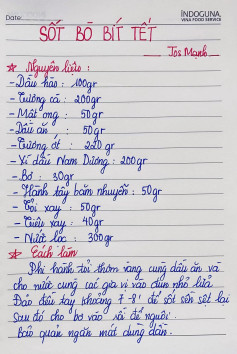 Date:
INDOGUNA
VINA FOOD SERVICE
SỐT BÒ BÍT TẾT
Jos Mạnh
Nguyên liệu:
- Dầu hào : 100gr
- Tương cà : 200gr
- Mật ong : 50gr
- Dầu ăn : 50gr
- Tương ớt : 220gr
- Xì dầu Nam Dương : 200gr
- Bơ : 30gr
- Hành tây băm nhuyễn : 50gr
- Tỏi xay : 50gr
- Tiêu xay : 40gr
- Nước lọc : 300gr
Cách làm
Phi hành tỏi thơm vàng cùng dầu ăn và
cho nước cùng các gia vị vào đun nhỏ lửa
Đảo đều tay khoảng 7-8' để sốt sền sệt lại
Sau đó cho bơ vào và để nguội.
Bảo quản ngăn mát dùng dần.